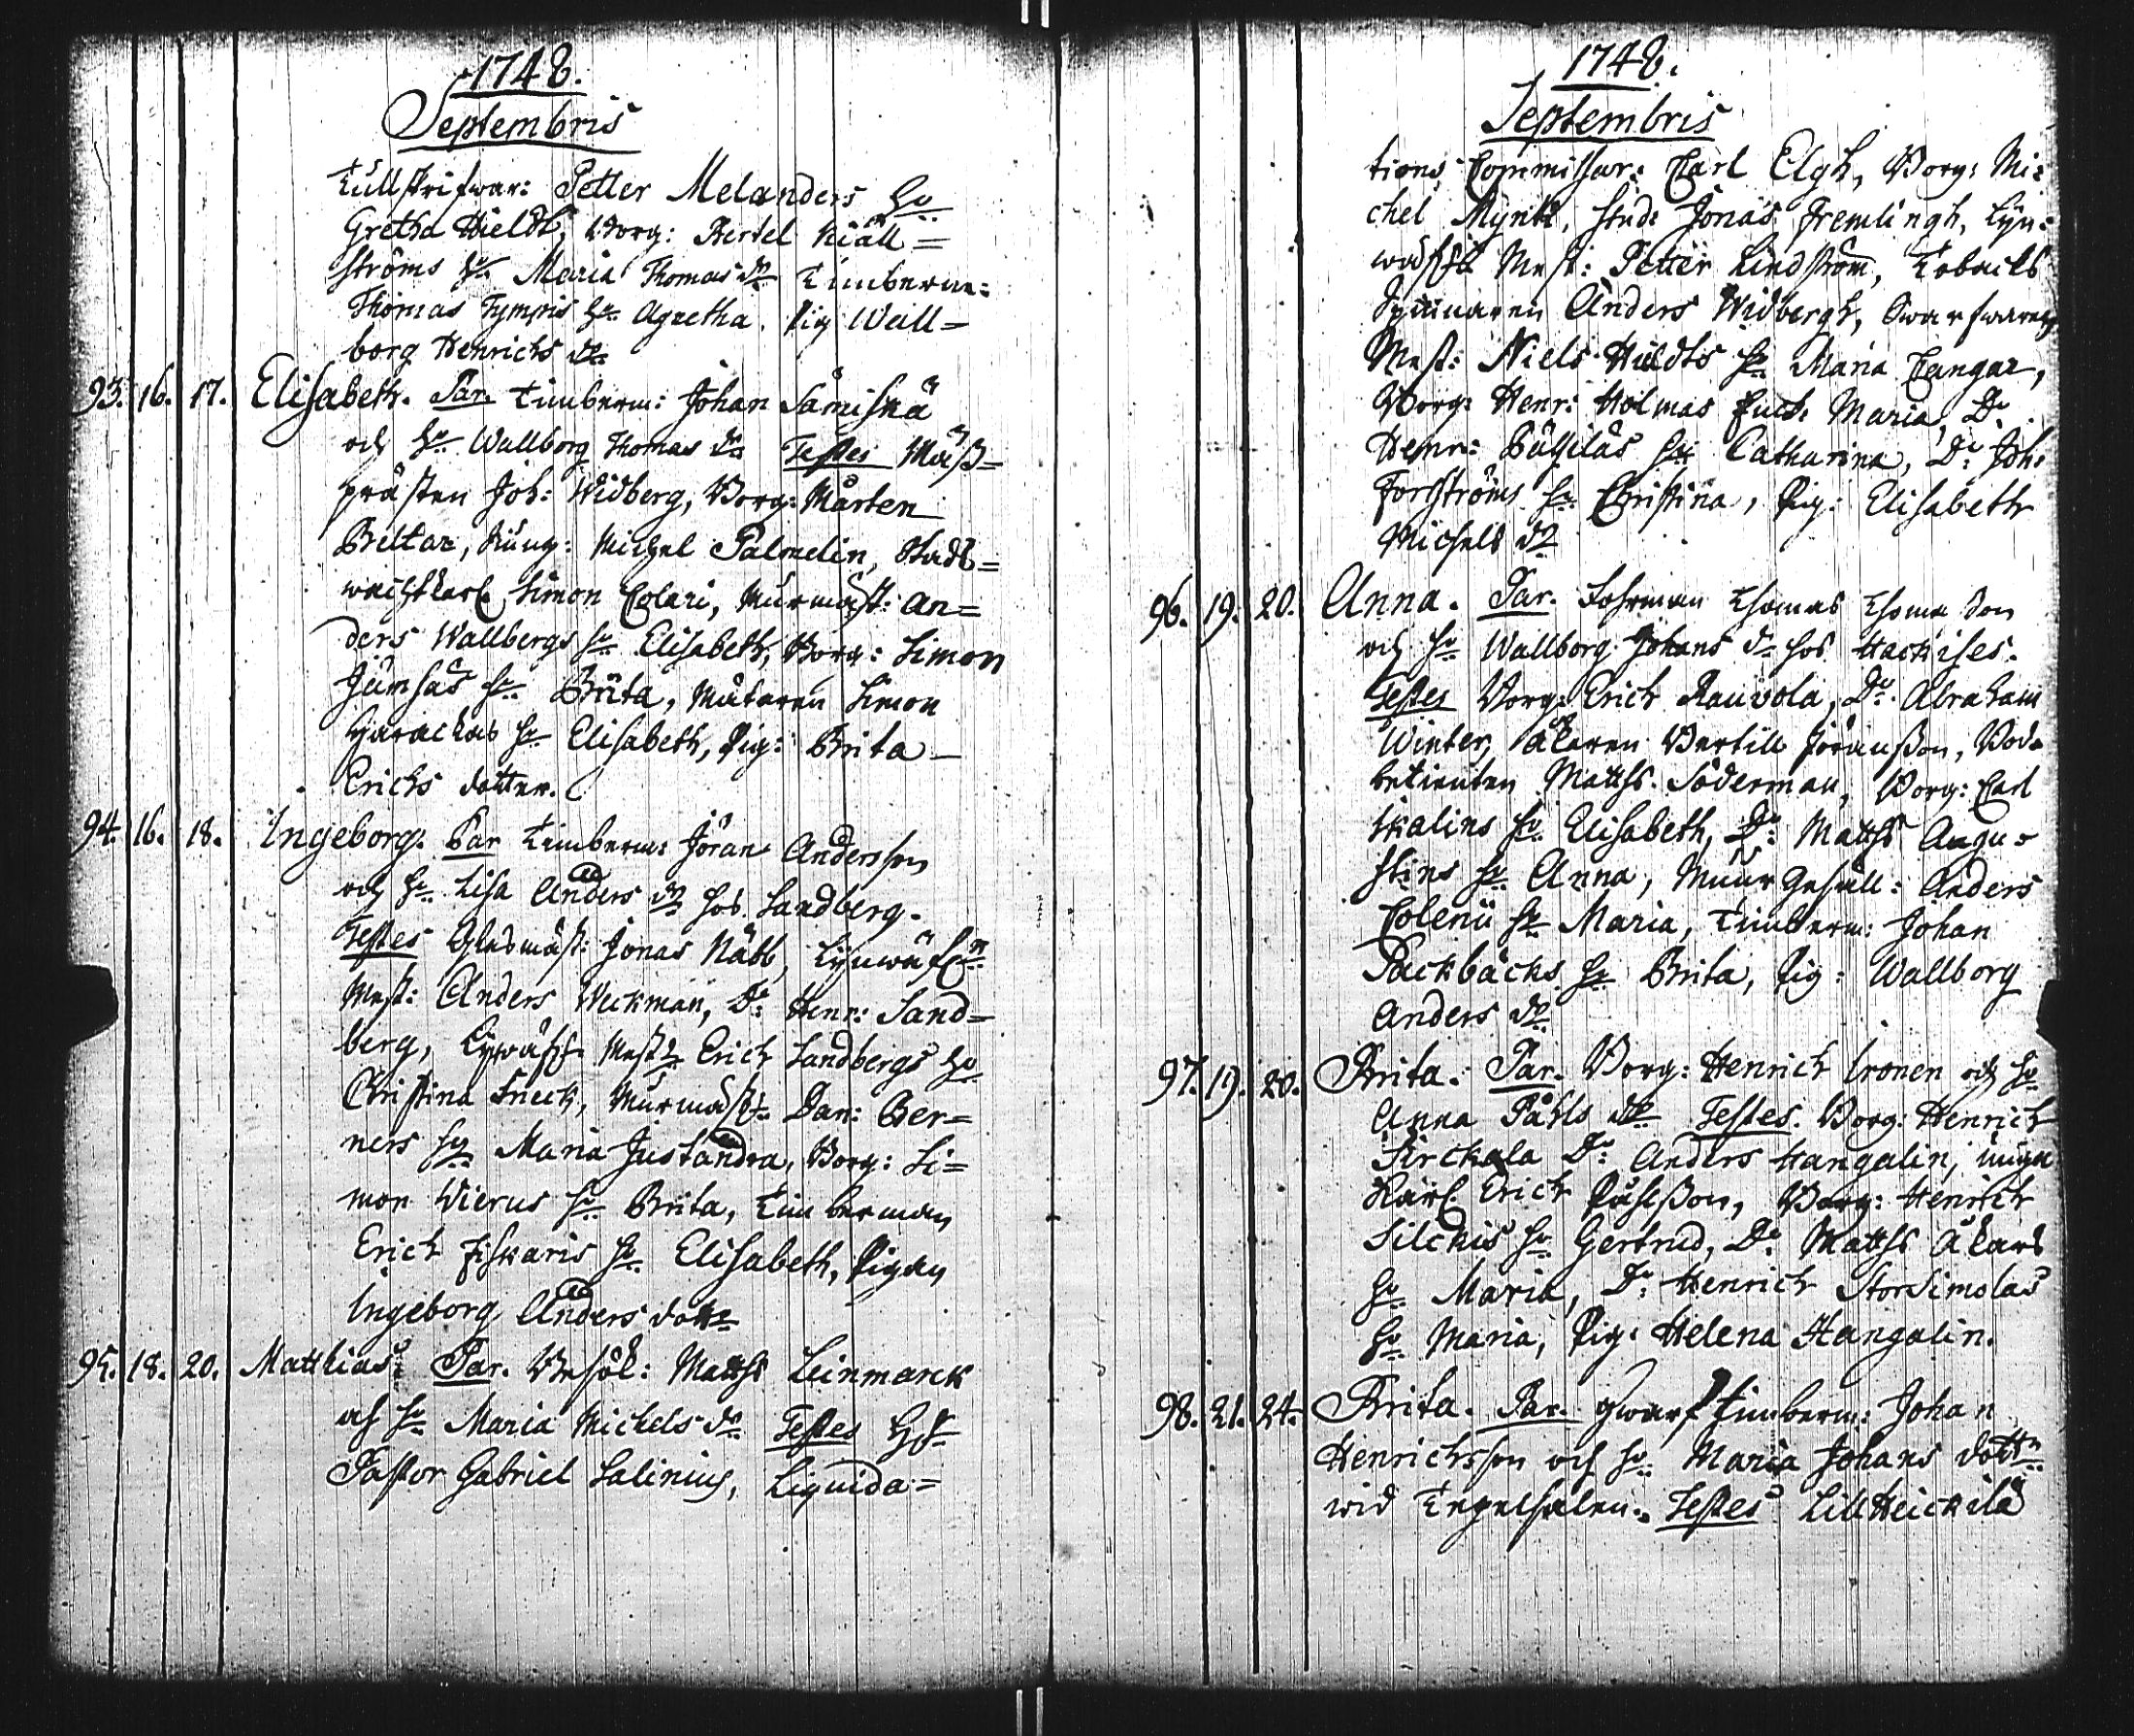 1748.
Septembris
Tullskrifwar: Petter Melanders Hu
Gretha Hieldt, Borg: Bertel Kiäll=
ströms hu Maria Thomas dr Timberm:
Thomas Tympris hu Agnetha. Pig Wall=
borg Henrichs dr
93. 16. 17. Elisabeth. Par. Timberm: Johan Sämiskä
och hu Wallborg Thomas dr Testes Mäss=
prästen Joh: Widberg, Borg: Mårten
Beltar, Michel Palmelin, Stads=
wachtkarl Simon Colari, Murmäst: An=
ders Wallbergs hu Elisabeth, Borg: Simon
Jumsas hu Brita, Mätaren Simon
hu Elisabeth, Pig: Brita
Erichs dotter.
94. 16. 18. Ingeborg. Par Timberm: Jöran Andersson
och hu Lisa Anders dr hos Sandberg.
Testes Glasmäst: Jonas Näbb,
Mest: Anders Weckman, Do Henr: Sand=
berg, Mestr Erich Sandbergs Hu
Christina Sneck, Murmäst Dan: Ber=
ners hu Maria Justandra, Borg: Si=
mon Wierus hu Brita, Timberman
Erich Fiskaris hu Elisabeth, Pigan
Ingeborg Anders dottr
95. 18. 20. Matthias Par. Besök: Matths Leinmarck
och hu Maria Michels dr Testes
Pastor Gabriel Salinius, Liquida=
1748.
Septembris
tions Commissar: Carl Elgh, Borg: Mi=
chel Mynti, Stud: Jonas Fremlingh, Lyn=
Mest: Petter Lindström, Tobacks
Spinnaren Anders Widbergh, Swarfwaren
Mest: Niels Hieldts hu Maria Cangar,
Borg: Henr: Holmas Enck: Maria, Do
Henr: hu Catharina, Do Joh:
Forsströms hu Christina, Pig: Elisabeth
Michels dr
96. 19. 20. Anna. Par. Fohrman Thomas Thoma son
och hu Wallborg Johans dr hos
Testes Borg: Erich Rauvola, Do Abraham
Winter, Åkaren Bertill Jöransson, Bod=
betienten Matths. Söderman, Borg: Carl
Walins hu Elisabeth, Do Matths Augu=
stins hu Anna, Muur Gesäll: Anders
hu Maria, Timberm: Johan
Packbäcks hu Brita, Pig: Wallborg
Anders dr
97. 19. 20. Brita. Par. Borg: Henrich Ironen och hu
Anna Påhls dr Testes. Borg: Henrich
Pirckala Do Anders Hangalin, unga
Karl Erich Påhlsson, Borg: Henrich
Silckis hu Gertrud, Do Matths Åkars
hu Maria, Do Henrich Storsimolas
hu Maria, Pig: Helena Hangalin.
98. 21. 24. Brita. Par. Qwarf Timberm: Johan
Henrichsson och hu Maria Johans dottr
wid Tegelsalen. Testes Lill Heickilä